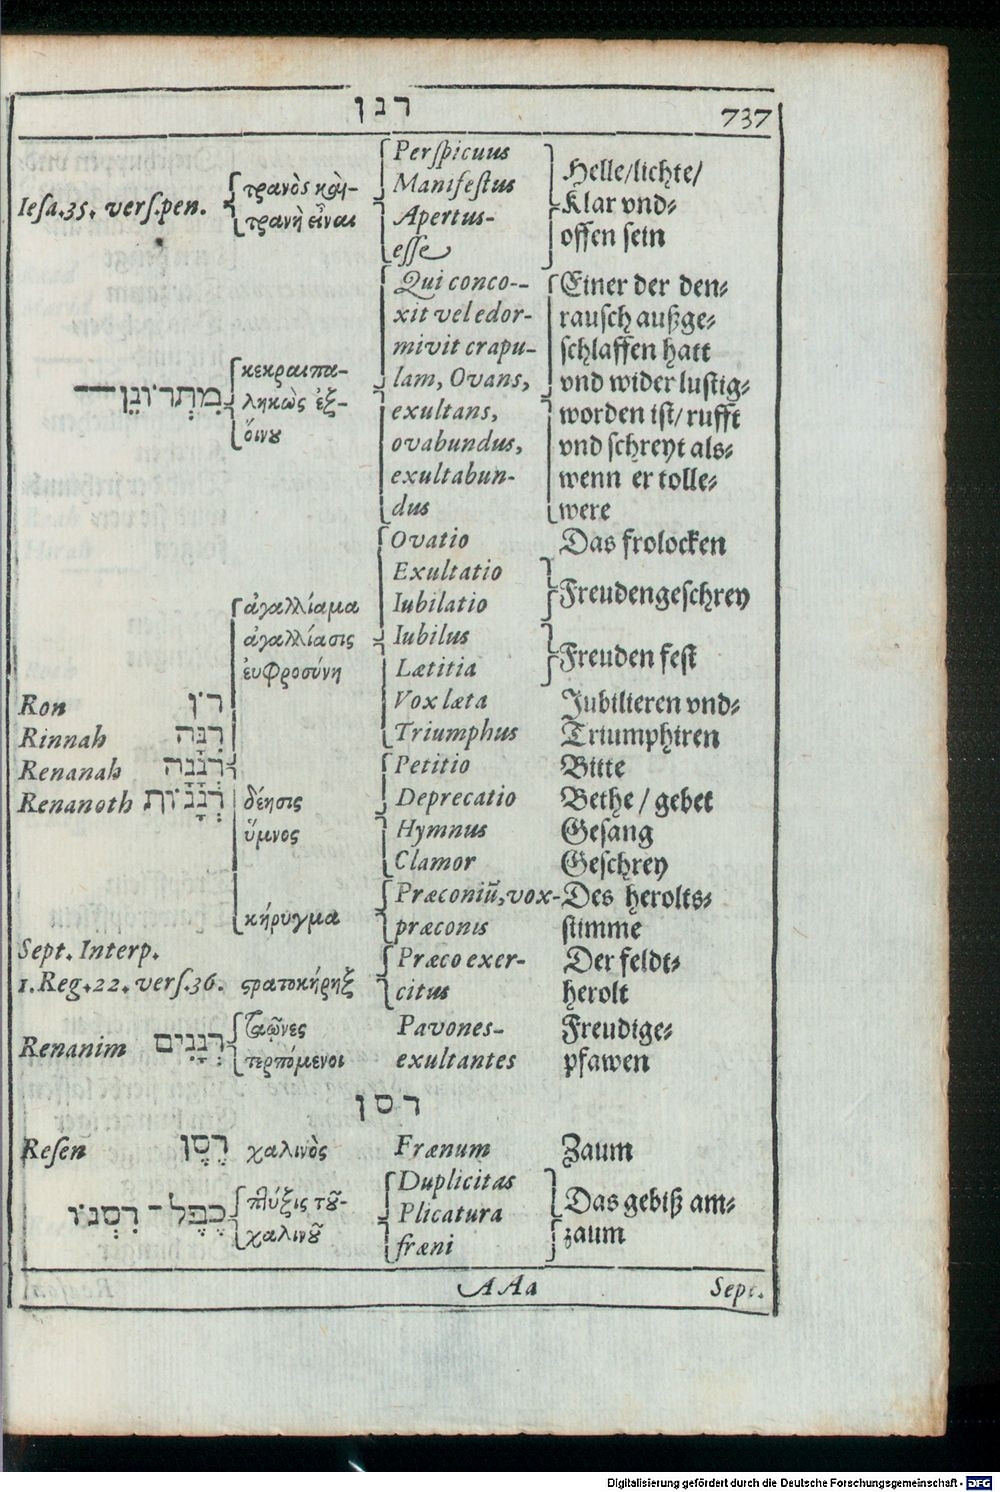 רנן 737
Iesa.35. vers.pen. τρανὸς καὶ- τρανὴ εἶναι
Perspicuus
Manifestus
Apertus-
esse
Helle/lichte/
Klar vnd⸗
offen sein
מִתְרוֹנֵן
κεκραιπα-
ληκὼς ἐξ-
ὄινȣ
Qui conco--
xit vel edor-
mivit crapu-
lam, Ovans,
exultans,
ovabundus,
exultabun-
dus
Einer der den⸗
rausch außge⸗
schlaffen hatt
vnd wider lustig⸗
worden ist/ rufft
vnd schreyt als⸗
wenn er tolle⸗
were
Ron רֹן
Rinnah רִנָּה
Renanah רְנָנָה
Renanoth רְנָנוֹת
ἀγαλλίαμα
ἀγαλλίασις
ἐυφροσύνη
Ovatio Das frolocken
Exultatio
Iubilatio Freudengeschrey
Iubilus
Lætitia Freuden fest
Vox læta Jubilieren vnd⸗
Triumphus Triumphiren
Petitio Bitte
δέησις Deprecatio Bethe / gebet
ὕμνος Hymnus Gesang
Clamor Geschrey
κήρυγμα
Præconiũ, vox- Des herolts⸗
præconis stimme
Sept. Interp.
1. Reg.22. vers.36. ϛρατοκήρηξ
Præco exer- Der feldt⸗
citus herolt
Renanim רְנָנִים
ταῶνες Pavones- Freudige⸗
τερπόμενοι exultantes pfawen
רסן
Resen רֶסֶן χαλινὸς Frænum Zaum
כֶפֶל־ רִסְנוֹ
πτύξις τȣ͂-
χαλινȣ͂
Duplicitas
Plicatura
fræni
Das gebiß am⸗
zaum
AAa Sept.
Digitalisierung gefördert durch die Deutsche Forschungsgemeinschaft - DFG